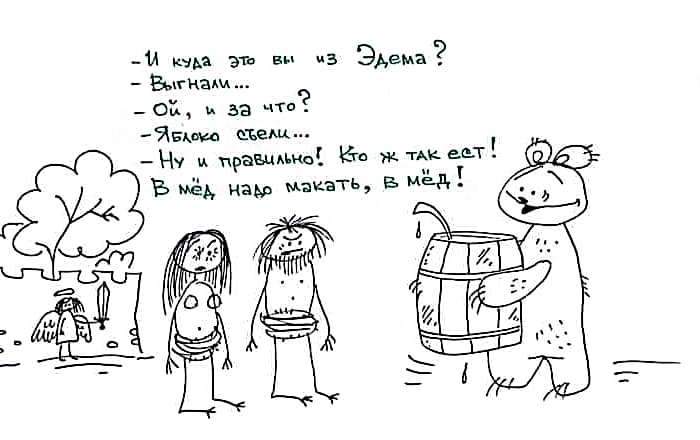 - И куда это вы из Эдема?
- Выгнали...
- Ой, и за что?
- Яблоко съели...
- Ну и правильно! Кто ж так ест!
В мёд надо макать, в мёд!